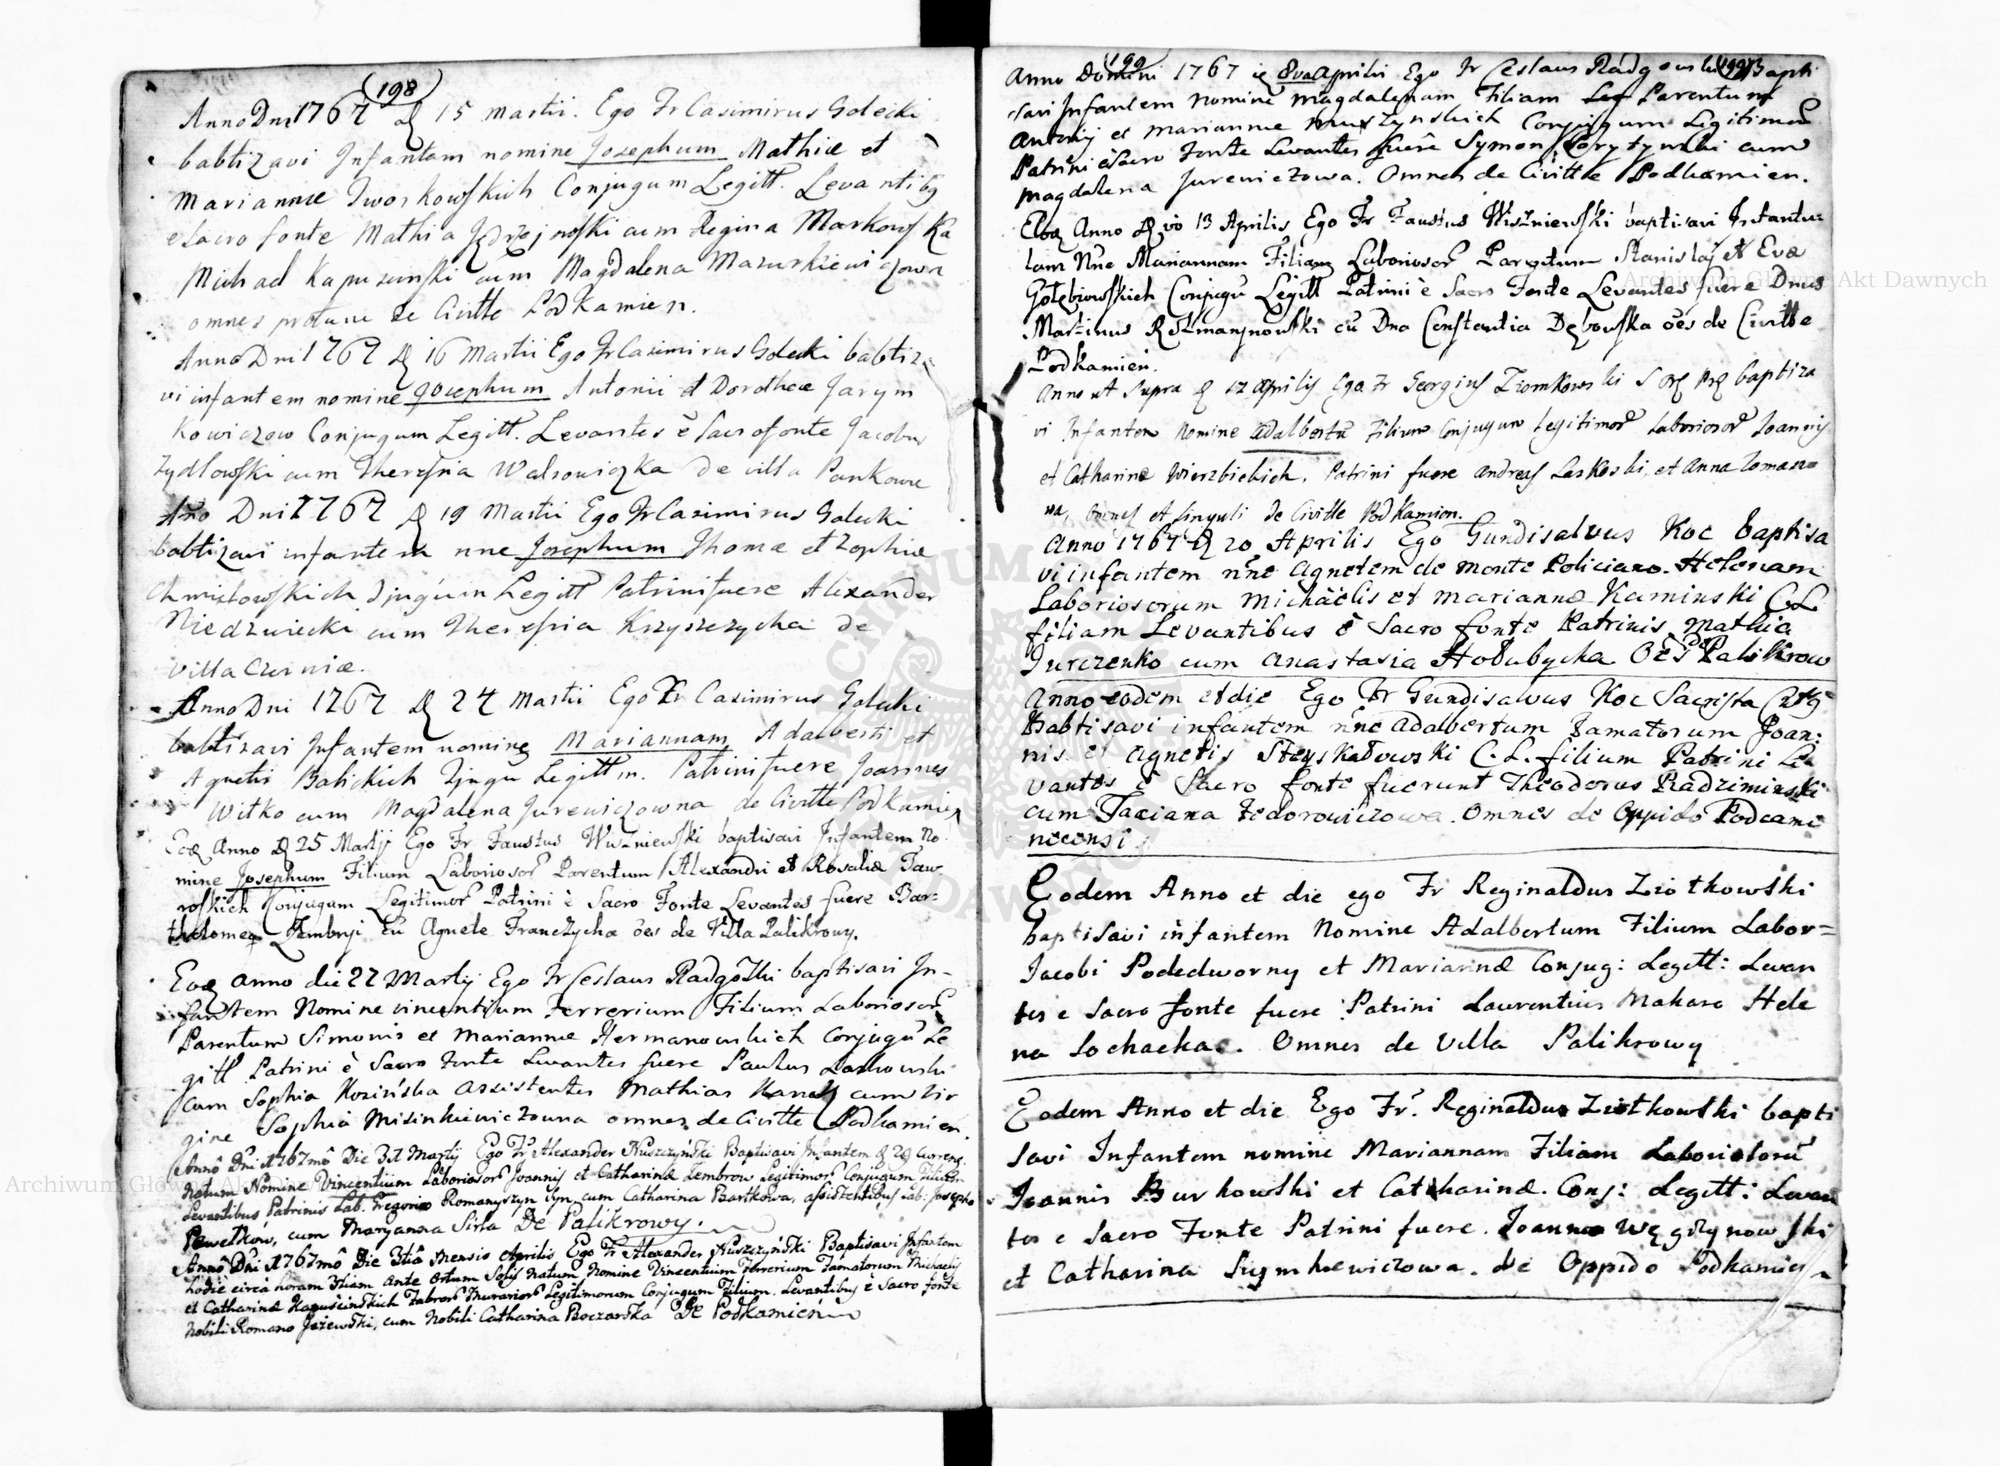 198
Anno Dni 1767 d 15 Martii. Ego Fr Casimirus Golecki
babtizavi Infantem nomine Josephum Mathiæ et
Mariannæ Iworkowskich Conjugum Legitt. Levantibg
e Sacro fonte Mathia cum Regina Markowska
Michael Kapuscinski cum Magdalena Mazurkiewiczowa
omnes de Civitte Podkamien.
Anno Dni 1767 d 16 Martii Ego Fr Casimirus Golecki babtiza
vi infantem nomine Josephum Antonii et Dorotheæ Jarym
kowiczow Conjugum Legitt. Levantes è Sacro fonte Jacobus
Zydlowski cum Theresia de villa Pankowce
Ano Dni 1767 d 19 Martii Ego Fr Casimirus Golecki
babtizavi infantem nne Josephum Thomæ et Zophiæ
Chmielowskich Legitt Patrini fuere Alexander
Niedzwiecki cum Theresia Krzyszczycha de
Villa Czernice.
Anno Dni 1767 d 24 Martii Ego Fr Casimirus Golecki
babtizavi Infantem nomine Mariannam Adalberti et
Agnetis Balickich Legittm. Patrini fuere Joannes
Witko cum Magdalena Jurewiczowna de Civitte Podkamien
Eod Anno d 25 Martij Ego Fr Faustus Wiszniewski baptisavi Infantem No
mine Josephum Filium Laboriosor Parentum Alexandri et Rosaliæ Jaw
rofskich Conjugum Legitimor Patrini è Sacro Fonte Levantes fuere Bar=
tholomeg Dembnji cu Agnete Franczycha oes de Villa Palikrowy.
Eod anno die 27 Martij Ego Fr Ceslaus Radgoski baptisavi In-
fantem Nomine vincentium Ferrerium Filium Laborioso
Parentum Simonis et Mariannæ Hermanowskich Conjugu Le
gitt Patrini è Sacro Fonte Levantes fuere Paulus Laskowski
Cum Sophia Kozińska Assistentes Mathias Kanas cum Vir
gine Sophia Misinkiewiczowna omnes de Civitte Podkamień.
Annô Dni 1767mô Die 31 Martij Ego Fr Alexander Kuszczyński Baptisavi Infantem d 29 Currens
Natum Nomine Vincentium Laboriosor Joannis et Catharinæ Zembrow Legitimor Conjugum Filium
Levantibus Patrinis Lab. Gregorio Romanyszyn Syn, cum Catharina Bartkowa, assistentibus Lab: Josepho
Pawelkow, cum Maryanna Sirla De Palikrowy.
Annô Dni 1767mô Die 3tiâ Mensis Aprilis Ego Fr Alexander Kuszczyński Baptisavi Infantem
hodie circa horam 3tiam Ante Ortum Solis Natum Nomine Vincentium Ferrerium Famatorum Michaelis
et Catharinæ Kapuścinskich Fabror Murarior Legitimorum Conjugum Filium. Levantibus è Sacro fonte
Nobili Romano Jeżewski, cum Nobili Catharina Boczarska De Podkamień
199
Anno Domini 1767 d 8va Aprilis Ego Fr Ceslaus Radgoski Bapti
savi Infantem nomine Magdalenam Filiam Leg Parentum
Antonij et Mariannæ Muszynskich Conjugum Legitimor
Patrini è Sacro Fonte Levantes fuerê Symon Korytynski cum
Magdalena Jurewiczowa. Omnes de Civitte Podkamien.
Eod Anno d vo 13 Aprilis Ego Fr Faustus Wiszniewski baptisavi Infantu
lam Nne Mariannam Filiam Laborioso Parentum Stanislaj et Evæ
Gołębiowskich Conjugu Legitt Patrini è Sacro Fonte Levantes fuere Dnus
Martinus Rozmarynowski cu Dna Constantia Dębowska oes de Civitte
Podkamien.
Anno ut Supra d 12 Aprilis Ego Fr Georgius Ziomkowski baptiza
vi Infantem Nomine Adalbertu Filium Conjugum Legitimor Laboriosor Joannis
et Catharinæ Wierzbickich. Patrini fuere Andreas Laskoski et Anna Toman
wa, Omnes et singuli de Civitte Podkamien.
Anno 1767 d 20 Aprilis Ego Gundisalvus Koc baptisa
vi infantem nne Agnetem de Monte Policiano. Helenam
Laboriosorum Michäelis et Mariannæ Kaminski C.L.
filiam Levantibus è Sacro fonte Patrinis Mathia
Jurczenko cum Anastasia Hołubycka Oes de Palikrow
Anno eodem et die Ego Fr Gundisalvus Koc Sacrista
Babtisavi infantem nne Adalbertum Famatorum Joan:
nis et Agnetis Steyskałowski C.L. filium Patrini Le
vantes è Sacro fonte fuerunt Theodorus Radziminski
cum Taciana Fedorowiczowa. Omnes de Oppido Podcami
necensi.
Eodem Anno et die ego Fr Reginaldus Ziotkowski
baptisavi infantem Nomine Adalbertum Filium Labor=
Jacobi Podedworny et Mariannæ Conjug: Legitt: Levan
tes e Sacro fonte fuere Patrini Laurentius Makara Hele
na Sochacka. Omnes de Villa Palikrowy
Eodem Anno et die Ego Fr. Reginaldus Ziotkowski bapti
savi Infantem nomine Mariannam Filiam Laboriosoru
Joannis Burkowski et Catharinæ. Conj: Legitt: Levan
tes e Sacro Fonte Patrini fuere. Joannes Węgrzynowski
et Catharina Szymkiewiczowa. de Oppido Podkamien
Archiwum Główne Akt Dawnych